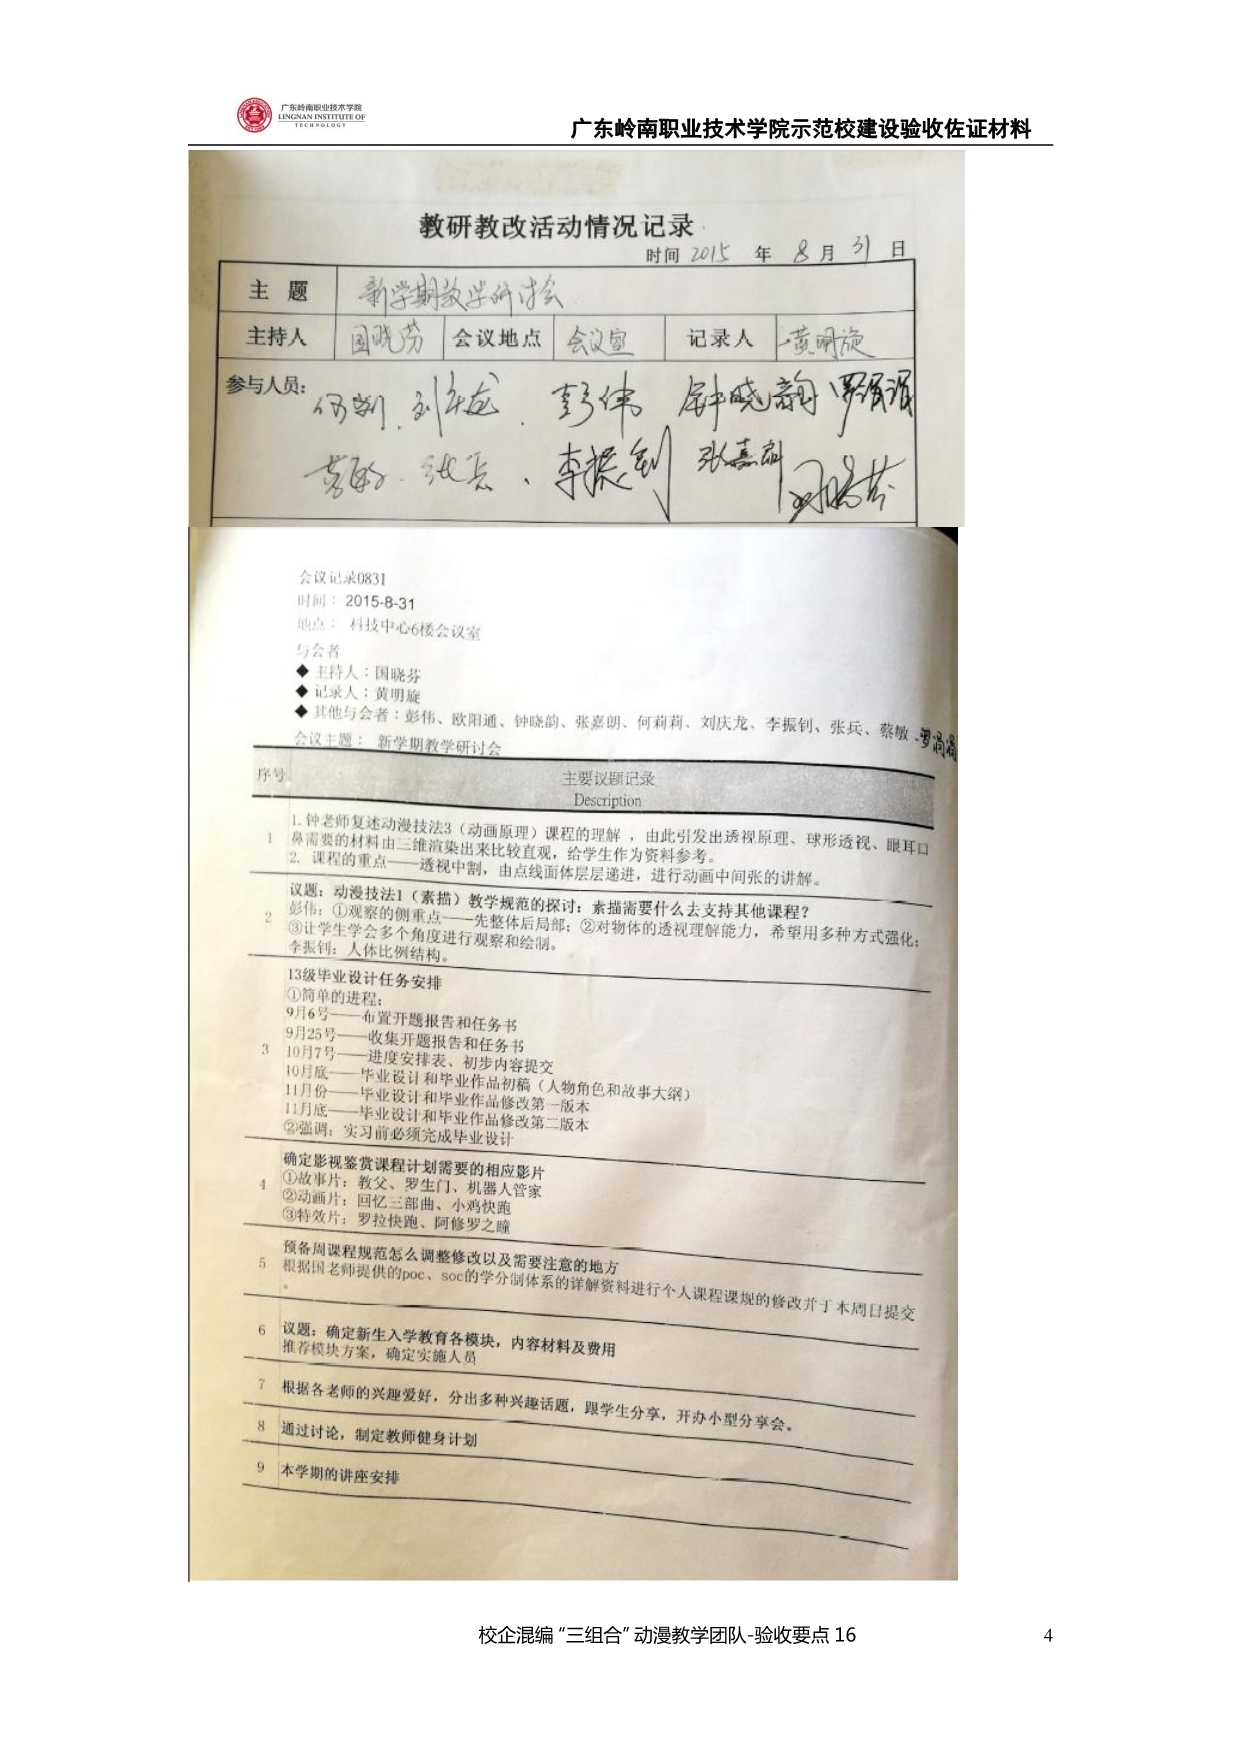 广东岭南职业技术学院
LINGNAN INSTITUTE OF
TECHNOLOGY
广东岭南职业技术学院示范校建设验收佐证材料
教研教改活动情况记录
时间 2015 年 8 月 31 日
主 题 新学期教学研讨会
主持人 国晓芬 会议地点 会议室 记录人 黄明旋
参与人员: 刘庆龙 彭伟 钟晓韵 罗涓涓
张兵、李振钊 张嘉朗 国晓芬
会议记录0831
时间: 2015-8-31
地点: 科技中心6楼会议室
与会者
◆ 主持人:国晓芬
◆ 记录人:黄明旋
◆ 其他与会者:彭伟、欧阳通、钟晓韵、张嘉朗、何莉莉、刘庆龙、李振钊、张兵、蔡敏、罗涓涓
会议主题: 新学期教学研讨会
序号 主要议题记录
Description
1 1.钟老师复述动漫技法3(动画原理)课程的理解,由此引发出透视原理、球形透视、眼耳口
鼻需要的材料由三维渲染出来比较直观,给学生作为资料参考。
2. 课程的重点——透视中割,由点线面体层层递进,进行动画中间张的讲解。
2 议题:动漫技法1(素描)教学规范的探讨:素描需要什么去支持其他课程?
彭伟:①观察的侧重点——先整体后局部;②对物体的透视理解能力,希望用多种方式强化;
③让学生学会多个角度进行观察和绘制。
李振钊:人体比例结构。
3 13级毕业设计任务安排
①简单的进程:
9月6号——布置开题报告和任务书
9月25号——收集开题报告和任务书
10月7号——进度安排表、初步内容提交
10月底——毕业设计和毕业作品初稿(人物角色和故事大纲)
11月份——毕业设计和毕业作品修改第一版本
11月底——毕业设计和毕业作品修改第二版本
②强调:实习前必须完成毕业设计
4 确定影视鉴赏课程计划需要的相应影片
①故事片:教父、罗生门、机器人管家
②动画片:回忆三部曲、小鸡快跑
③特效片:罗拉快跑、阿修罗之瞳
5 预备周课程规范怎么调整修改以及需要注意的地方
根据国老师提供的poc、soc的学分制体系的详解资料进行个人课程课规的修改并于本周日提交
。
6 议题:确定新生入学教育各模块,内容材料及费用
推荐模块方案,确定实施人员
7 根据各老师的兴趣爱好,分出多种兴趣话题,跟学生分享,开办小型分享会。
8 通过讨论,制定教师健身计划
9 本学期的讲座安排
校企混编“三组合”动漫教学团队-验收要点 16 4